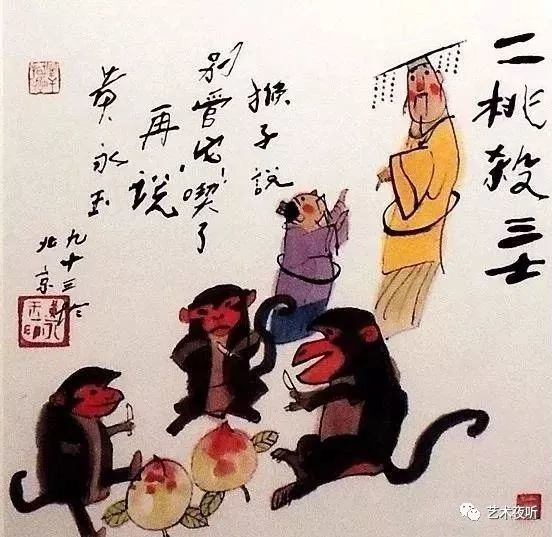 二桃殺三士
猴子說
别管它!喫了
再說
黄永玉
九十三於
北京
艺术夜听